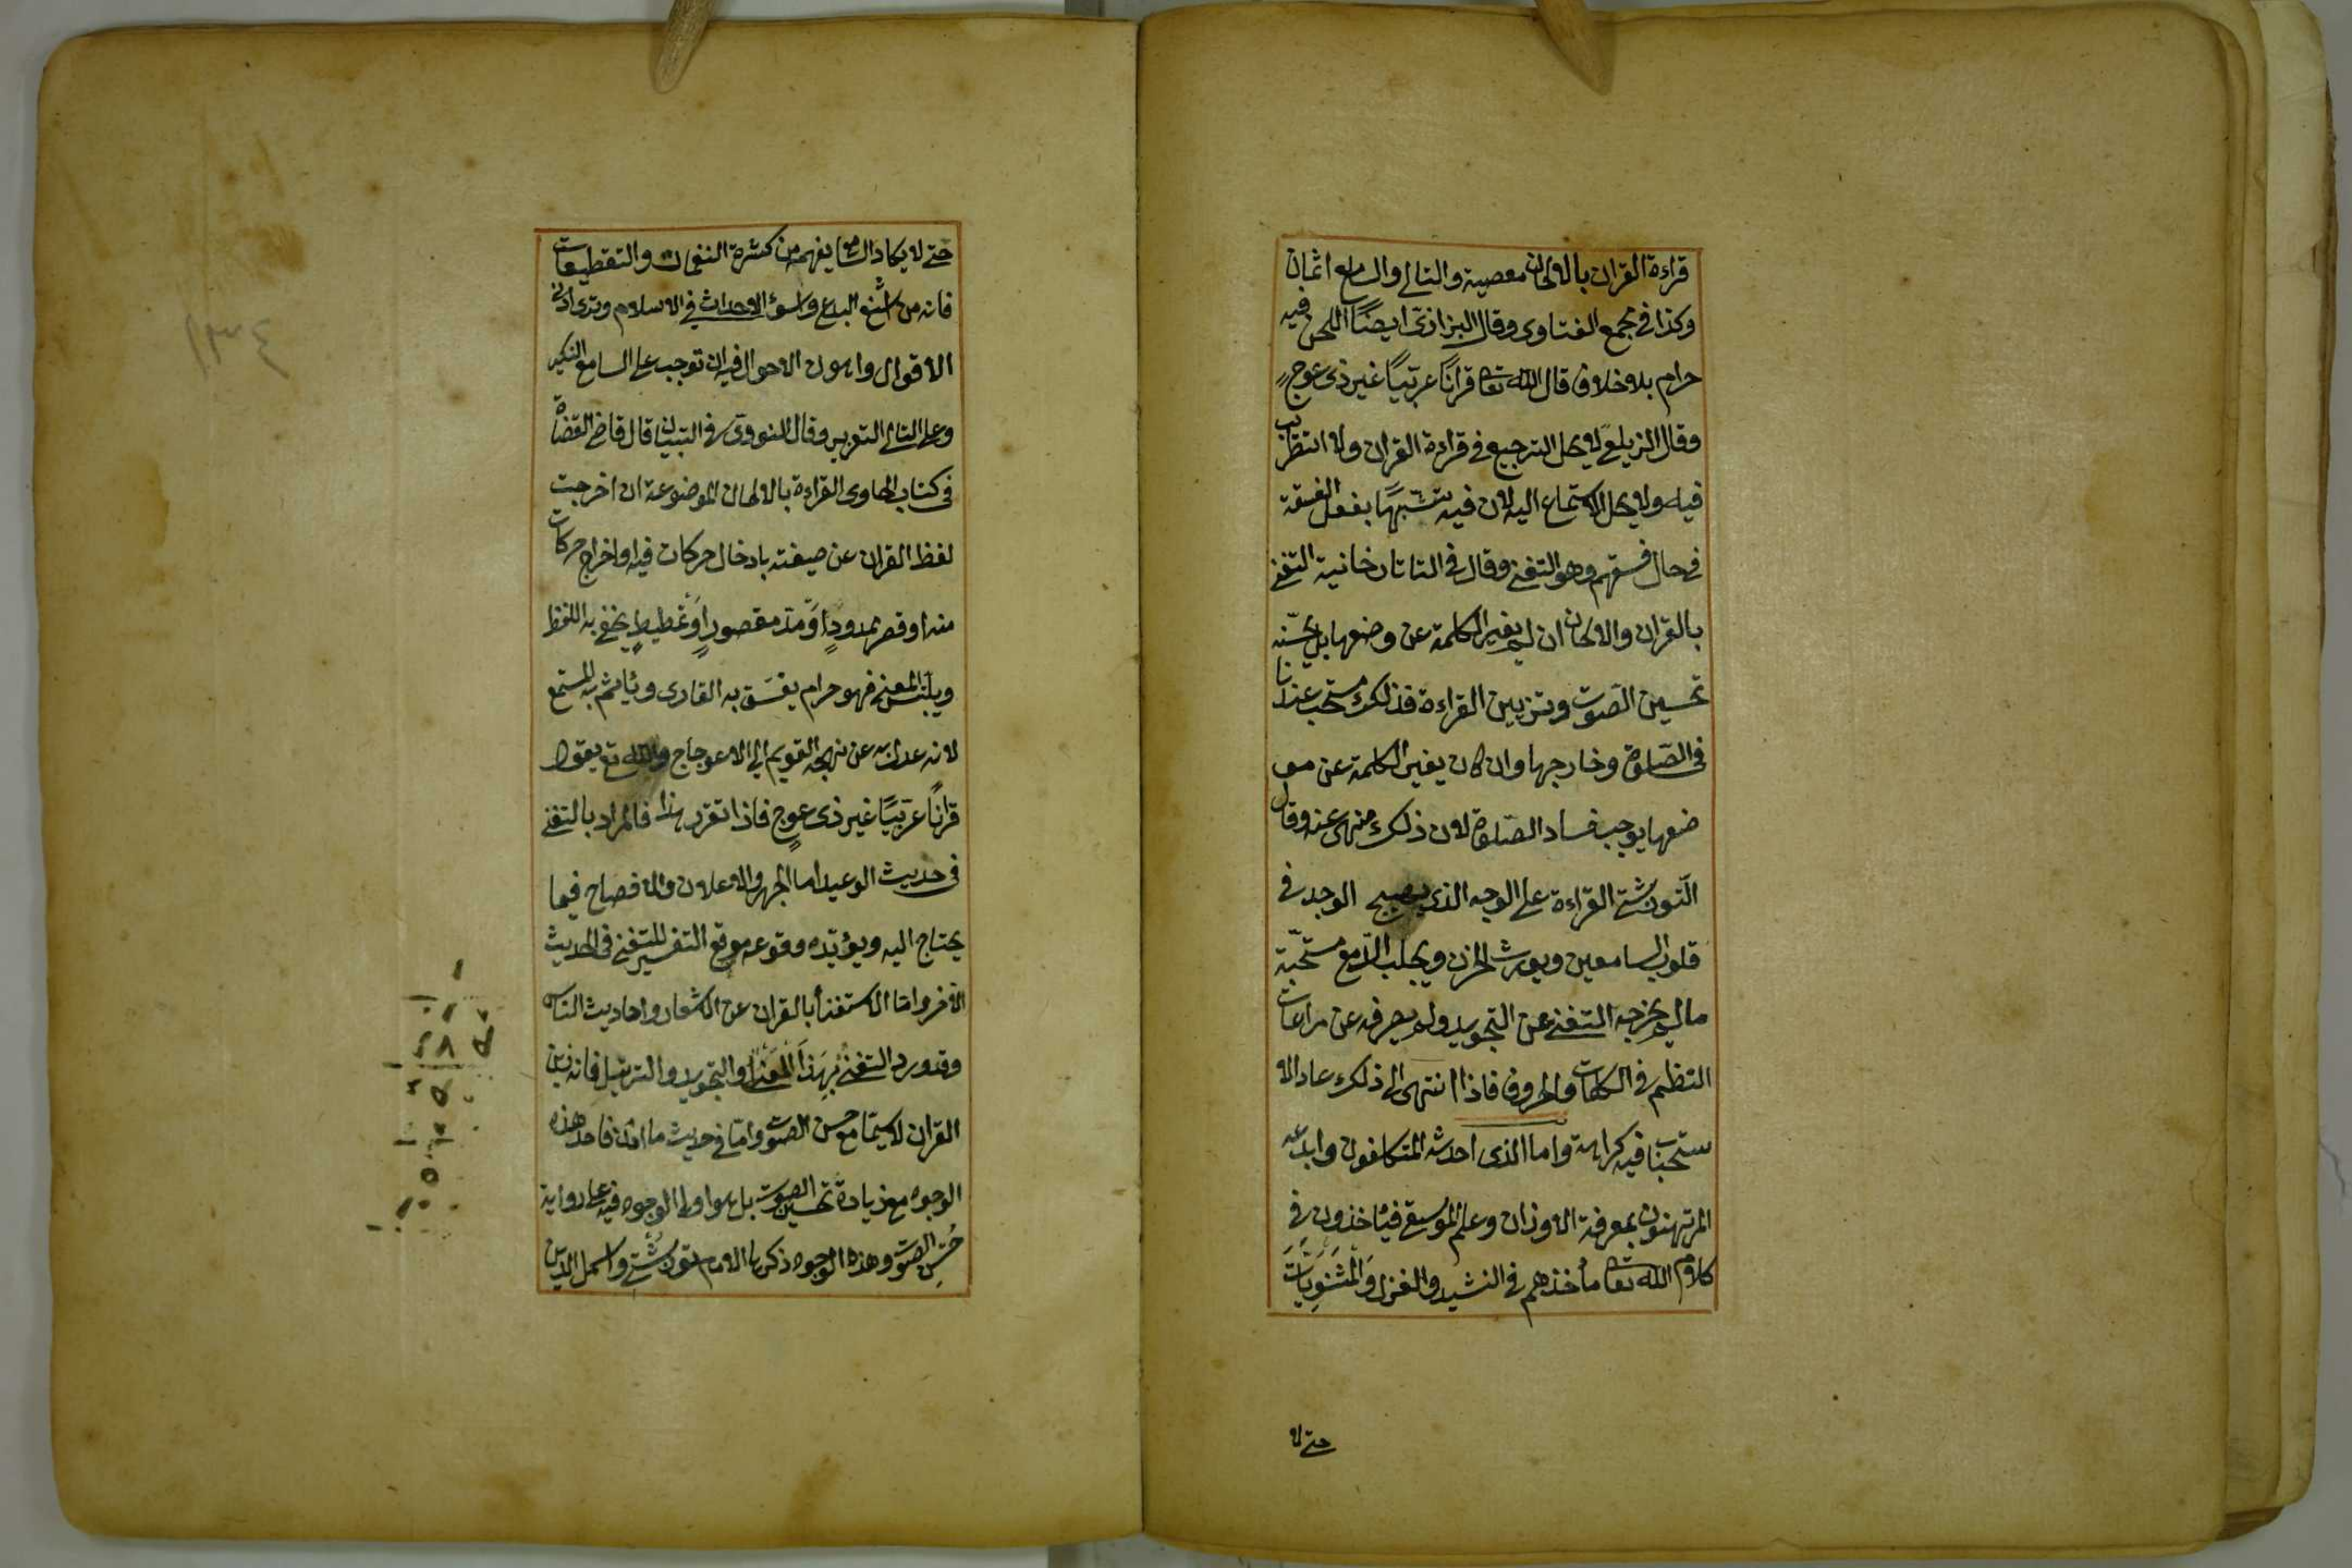 قراءة القران بالالحان معصية والتالى والسامع اثمان
وكذا فى مجمع الفتاوى وقال البزازى ايضًا اللحن فيه
حرام بلا خلاف قال الله تعا قرانًا عربيًا غير ذى عوجٍ
وقال الزيلعى لا يحل الترجيع فى قراءة القران ولا التطريب
فيه ولا يحل الاستماع اليه لان فيه تشبهًا بفعل الفسقة
فى حال فسقهم وهو التغنى وقال فى التاتارخانية التغنى
بالقران والالحان ان لم يغير الكلمة عن وضعها بل يحسّنه
تحسين الصّوت وتزيين القراءة فذلك مستحب عندنا
فى الصّلوة وخارجها وان كان يغير الكلمة عن مو
ضعها يوجب فساد الصّلوة لان ذلك منهى عنه وقال
التّوربشتى القراءة على الوجه الذى يهيج الوجد فى
قلوب السامعين ويورث الحزن ويجلب الدّمع مستحبّة
مالم يخرجه التغنى عن التجويد ولم يصرفه عن مراعات
النظم فى الكلمات والحروف فاذا انتهى الى ذلك عاد الا
ستحباب فيه كراهة واما الذى احدثه المتكلفون وابدعه
المرتهنون بمعرفة الاوزان وعلم الموسيقى فيأخذون فى
كلام الله تعا مأخذهم فى النشيد والغزل والمثنويات
حتى لا
حتى لا يكاد السامع يفهمه من كثرة النغمات والتقطيعات
فانه من اشنع البدع واسوء الاحداث فى الاسلام ونرى ادنى
الاقوال واهون الاحوال فيه ان توجب على السامع النكير
وعلى التالى التعزير وقال النووى فى التبيان قال قاضى القضاة
فى كتاب الحاوى القراءة بالالحان الموضوعة ان اخرجت
لفظ القران عن صيغته بادخال حركات فيه او اخراج حركات
منه او قصر ممدودٍ او مدّ مقصورٍ او تمطيطٍ يخفى به اللفظ
ويلتبس المعنى فهو حرام يفسّق به القارى ويأثم به المستمع
لانه عدل به عن نهجه القويم الى الاعوجاج والله تع يقول
قرانًا عربيًا غير ذى عوجٍ فاذا تقرر هذا فالمراد بالتغنى
فى حديث الوعيد اما الجهر والاعلان والافصاح فيما
يحتاج اليه ويؤيّده وقوعه موقع التفسير للتغنى فى الحديث
الاخر واما الاستغناء بالقران عن الاشعار واحاديث الناس
وقد ورد التغنى بهذا المعنى او التجويد والترتيل فانه زين
القران لاسيّما مع حسن الصّوت وامّا فى حديث ما اذن فاحد هذه
الوجوه مع زيادة تحسين الصوت بل هو اولى الوجوه فيه على رواية
حُسْنِ الصّوت وهذه الوجوه ذكرها الامام التّوربشتى واكمل الدين
١٣٤